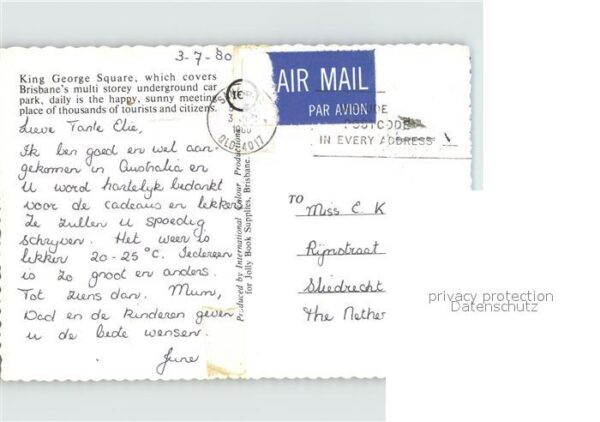 3-7-80
King George Square, which covers
Brisbane's multi storey underground car
park, daily is the happy, sunny meeting
place of thousands of tourists and citizens.
Lieve Tante Elie,
Ik ben goed en wel aan-
gekomen in Australia en
U word hartelijk bedankt
voor de cadeaus en lekkers
Ze zullen U spoedig
schrijven. Het weer is
lekker 20-25°C. Iedereen
is zo groot en anders.
Tot ziens dan. Mum,
Dad en de kinderen geven
u de beste wensen.
June
Produced by International Colour Productions
for Jolly Book Supplies, Brisbane.
AIR MAIL
PAR AVION
1980
QLD-4017
POSTCODE
IN EVERY ADDRESS
TO
Miss E. K
Rijnstraat
Sliedrecht
The Nether
privacy protection
Datenschutz